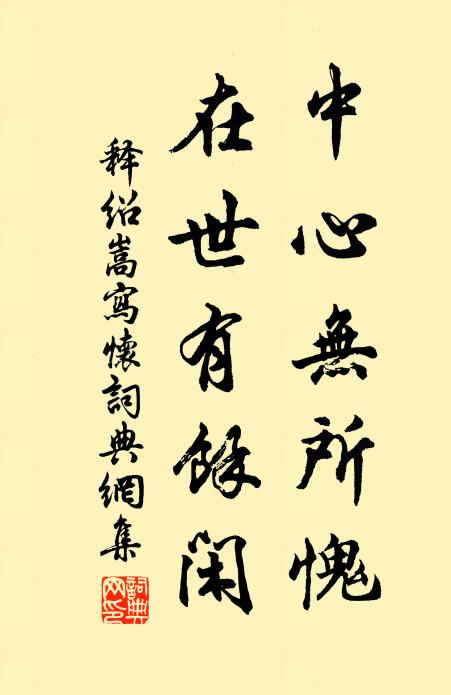 中心無所愧
在世有餘閑
释绍嵩寫懷詞典網集
詞典網印